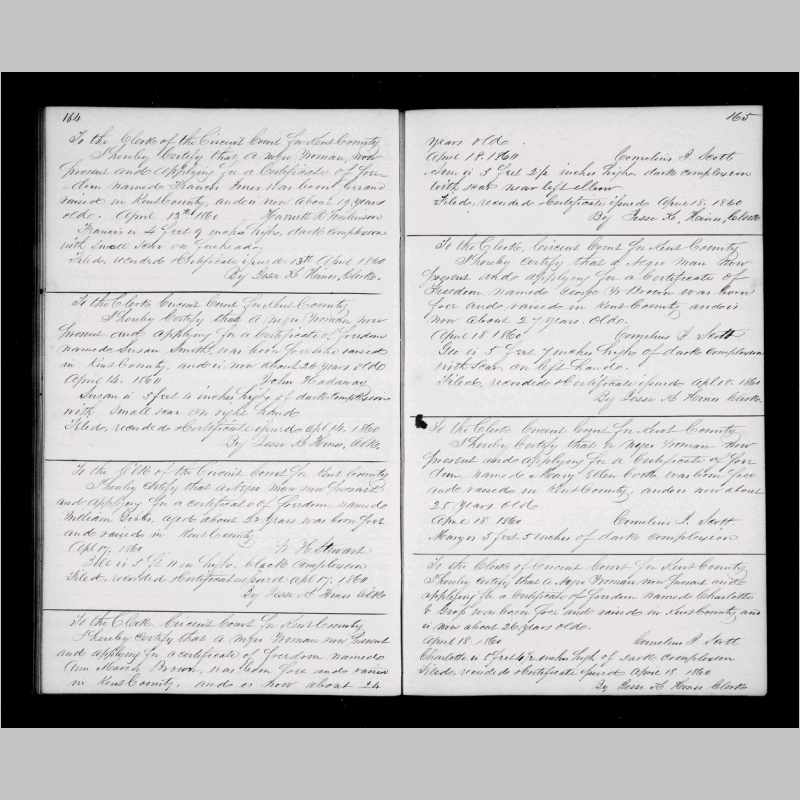 164
To the Clerk of the Circuit Court for Kent County
I hereby Certify that a negro Woman, now
present and Applying for a Certificate of free
dom named Frances was born free and
raised in Kent County, and is now about 19 years
old. April 13th 1860
Frances is 4 feet 9 inches high, dark complexion
with small scar on forehead.
Filed, recorded & Certificate issued 13th April 1860
By Jesse K. Hines, Clerk.
To the Clerk Circuit Court for Kent County
I hereby Certify that a negro Woman now
present and applying for a Certificate of freedom
named Susan Smith, was born free and raised
in Kent County, and is now about 26 years old
April 14. 1860 John Hadaway
Susan is 5 feet 4 inches high, of dark complexion
with small scar on right hand
Filed, recorded & Certificate issued Apl 14. 1860
By Jesse K. Hines, Clk.
To the Clk of the Circuit Court for Kent County
I hereby certify that a negro man now present
and applying for a certificate of freedom named
William aged about 22 years was born free
and raised in Kent County
Apl 17. 1860 Stewart
is 5 ft high, black complexion
Filed, recorded & Certificate issued Apl 17. 1860
By Jesse K. Hines Clk
To the Clerk Circuit Court for Kent County
I hereby certify that a negro Woman now present
and applying for a certificate of freedom named
Ann Maria Brown, was born free and raised
in Kent County, and is now about 24
165
years old.
April 18. 1860 Cornelius J. Scott
Ann is 5 feet 2 1/2 inches high, dark complexion
with scar near left elbow
Filed, recorded & Certificate issued April 18, 1860
By Jesse K. Hines, Clerk
To the Clerk, Circuit Court for Kent County
I hereby certify that a Negro man now
present and applying for a Certificate of
Freedom named George W. Brown was born
free and raised in Kent County and is
now about 27 years old.
April 18 1860 Cornelius J. Scott
Geo is 5 feet 7 inches high of dark complexion
with scar on left hand.
Filed, recorded & Certificate issued Apl 18. 1860
By Jesse K. Hines Clerk.
To the Clerk Circuit Court for Kent County
I hereby Certify that a negro Woman now
present and applying for a Certificate of free
dom, named Mary Ellen was born free
and raised in Kent County, and is now about
25 years old
April 18 1860 Cornelius J. Scott
Mary is 5 feet 5 inches of dark complexion
To the Clerk of Circuit Court for Kent County
I hereby certify that a Negro Woman now present and
applying for a Certificate of freedom named Charlotte
was born free and raised in Kent County, and
is now about 26 years old.
April 18. 1860 Cornelius J. Scott
Charlotte is 5 feet inches high, of dark complexion
Filed, recorded & Certificate issued April 18. 1860
By Jesse K. Hines Clerk